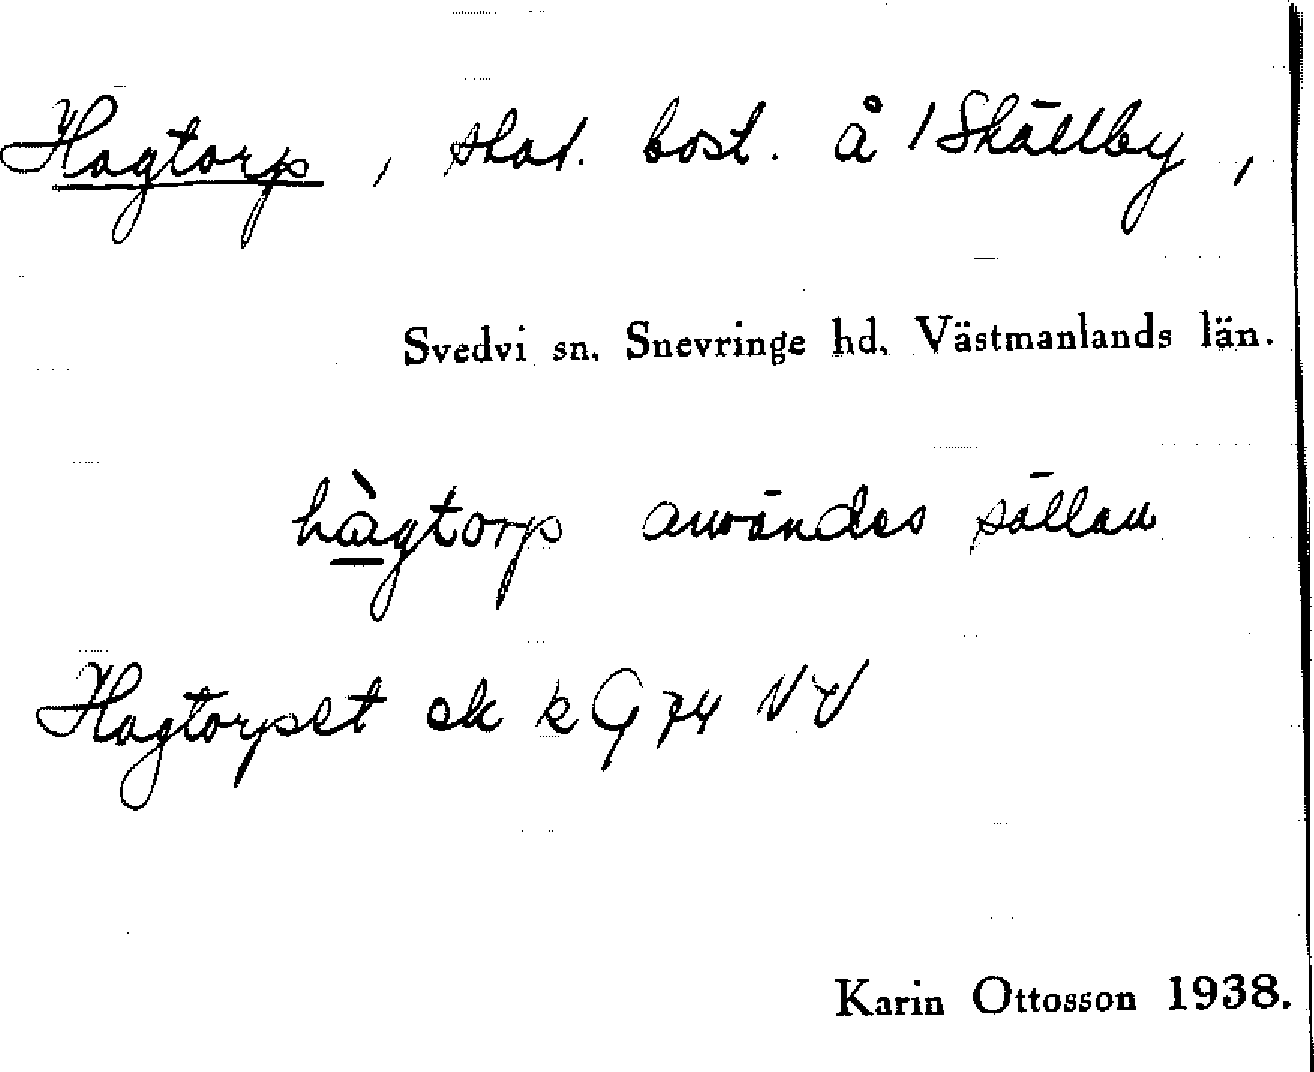 Hagtorp, skat. bost. å 1 Skällby,
Svedvi sn. Snevringe hd. Västmanlands län.
hàgtorp användes sällan
Hagtorpset ek k G 74 NV
Karin Ottosson 1938.